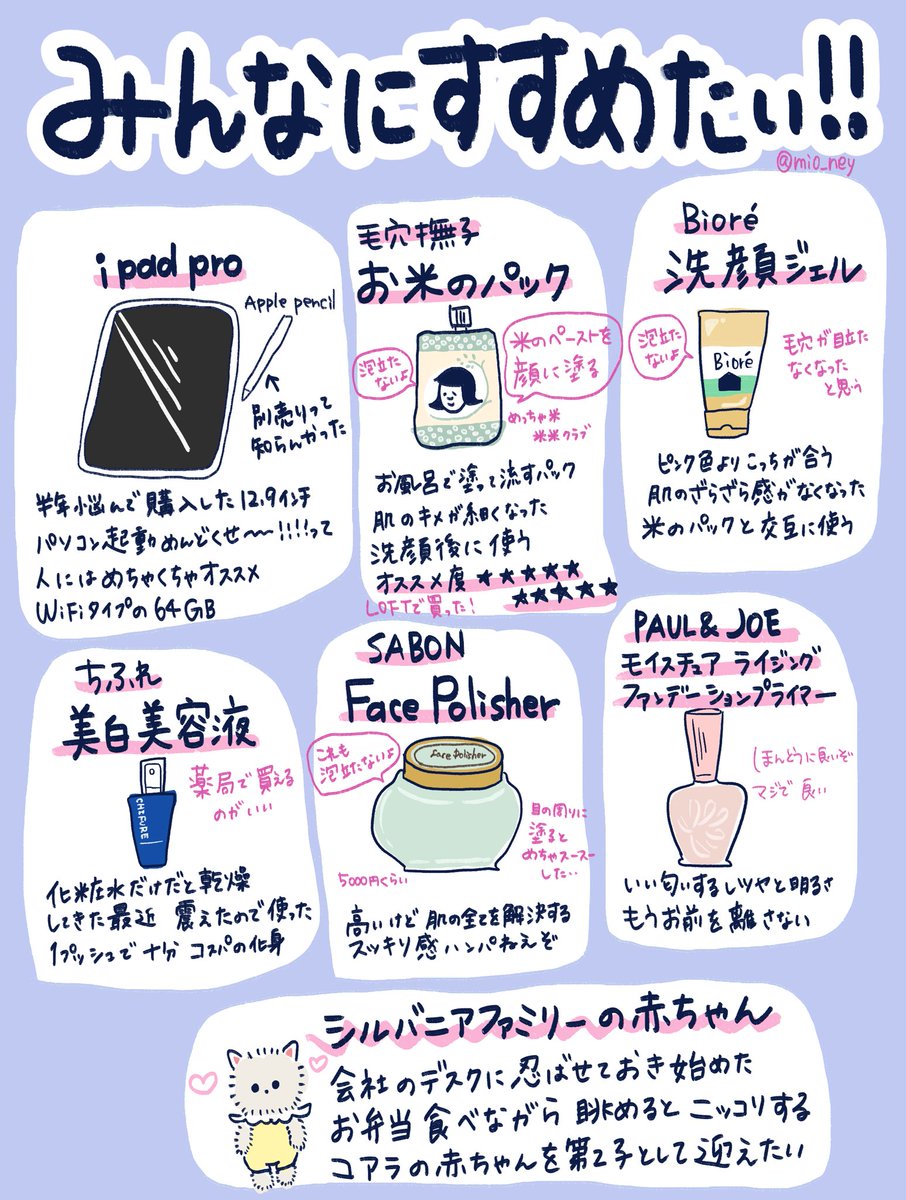 みんなにすすめたい!!
@mio_ney
ipad pro
Apple pencil
別売りって
知らんかった
半年悩んで購入した12.9インチ
パソコン起動めんどくせ〜〜!!!!って
人にはめちゃくちゃオススメ
WiFiタイプの64GB
毛穴撫子
お米のパック
泡立た
ないよ
米のペーストを
顔に塗る
めっちゃ米
米米クラブ
お風呂で塗って流すパック
肌のキメが細くなった
洗顔後に使う
オススメ度 ★★★★★
★★★★★
LOFTで買った!
Bioré
洗顔ジェル
泡立た
ないよ
Bioré
毛穴が目立た
なくなった
と思う
ピンク色よりこっちが合う
肌のざらざら感がなくなった
米のパックと交互に使う
ちふれ
美白美容液
CHIFURE
薬局で買える
のがいい
化粧水だけだと乾燥
してきた最近 震えたので使った
1プッシュで十分 コスパの化身
SABON
Face Polisher
これも
泡立たないよ
face Polisher
目の周りに
塗ると
めちゃスースー
した..
5000円くらい
高いけど肌の全てを解決する
スッキリ感ハンパねえぞ
PAUL & JOE
モイスチュア ライジング
ファンデーションプライマー
ほんとうに良いぞ
マジで良い
いい匂いするしツヤと明るさ
もうお前を離さない
シルバニアファミリーの赤ちゃん
会社のデスクに忍ばせておき始めた
お弁当食べながら眺めるとニッコリする
コアラの赤ちゃんを第2子として迎えたい